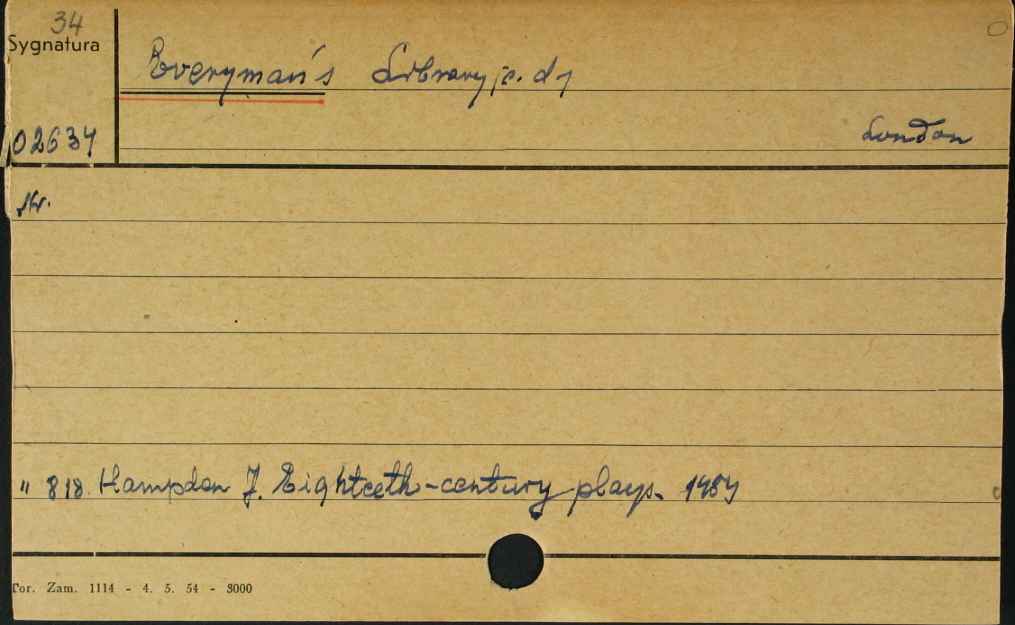 34
Sygnatura
Everyman's Library /c. d/
London
02634
Nr.
" 818. Hampden J. Eighteeth-century plays. 1954
Tor. Zam. 1114 - 4. 5. 54 - 3000